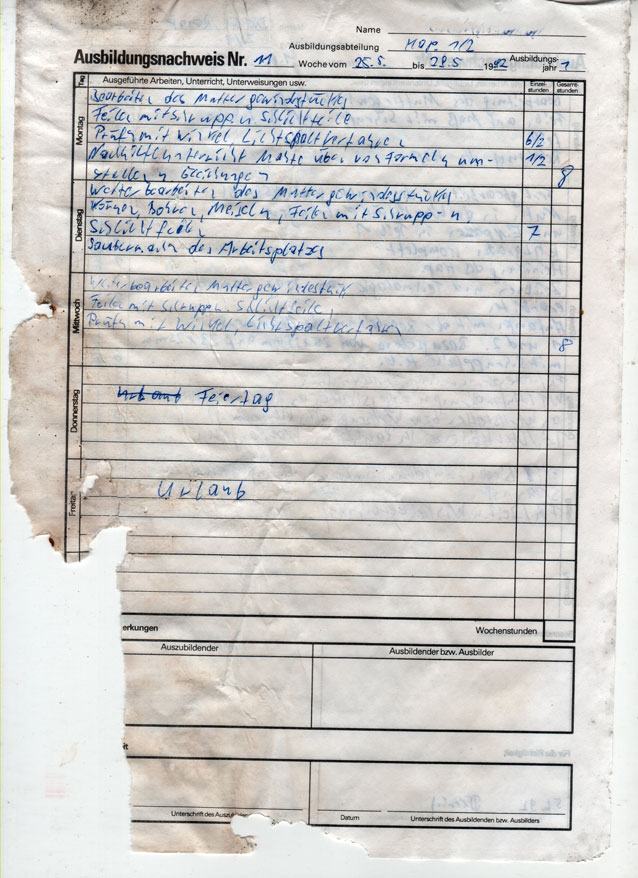 Name
Ausbildungsabteilung Map. 1/2
Ausbildungsnachweis Nr. 11 Woche vom 25.5. bis 29.5 1992 Ausbildungsjahr 1
Tag Ausgeführte Arbeiten, Unterricht, Unterweisungen usw. Einzelstunden Gesamtstunden
Montag
Bearbeiten des
Feilen mit Schrupp n Schlichtfeile
Prüfen mit Winkel, Lichtspaltverfahren 6/2
Mathe über von Formeln um- 1/2
stellen n Gleichungen 8
Dienstag
Weiterbearbeiten des
Körnen, Bohren, Meiseln, Feilen mit Schrupp- n
Schlichtfeile 7
Saubermachen des Arbeitsplatzes
Mittwoch
Feilen mit Schruppen Schlichtfeile,
Prüfen mit Winkel, Lichtspaltverfahren
8
Donnerstag
Urlaub Feiertag
Freita
Urlaub
erkungen Wochenstunden
Auszubildender Ausbildender bzw. Ausbilder
it
Für die Richtigkeit
Unterschrift des Auszu Datum Unterschrift des Ausbildenden bzw. Ausbilders